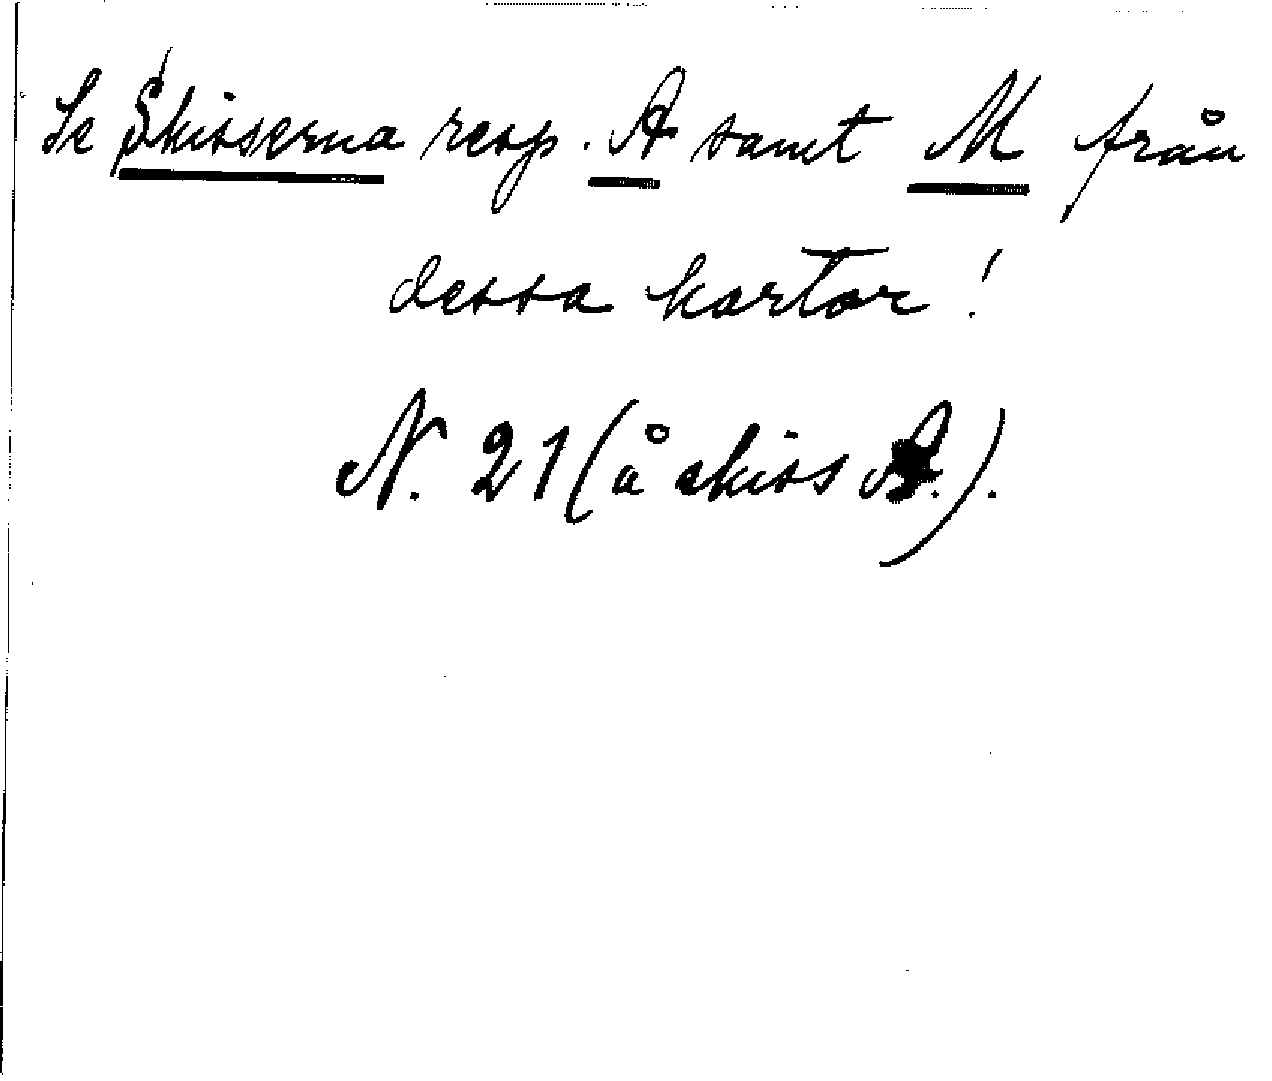 Se Skisserna resp. A samt M från
dessa kartor!
N. 21 (å skiss A.).